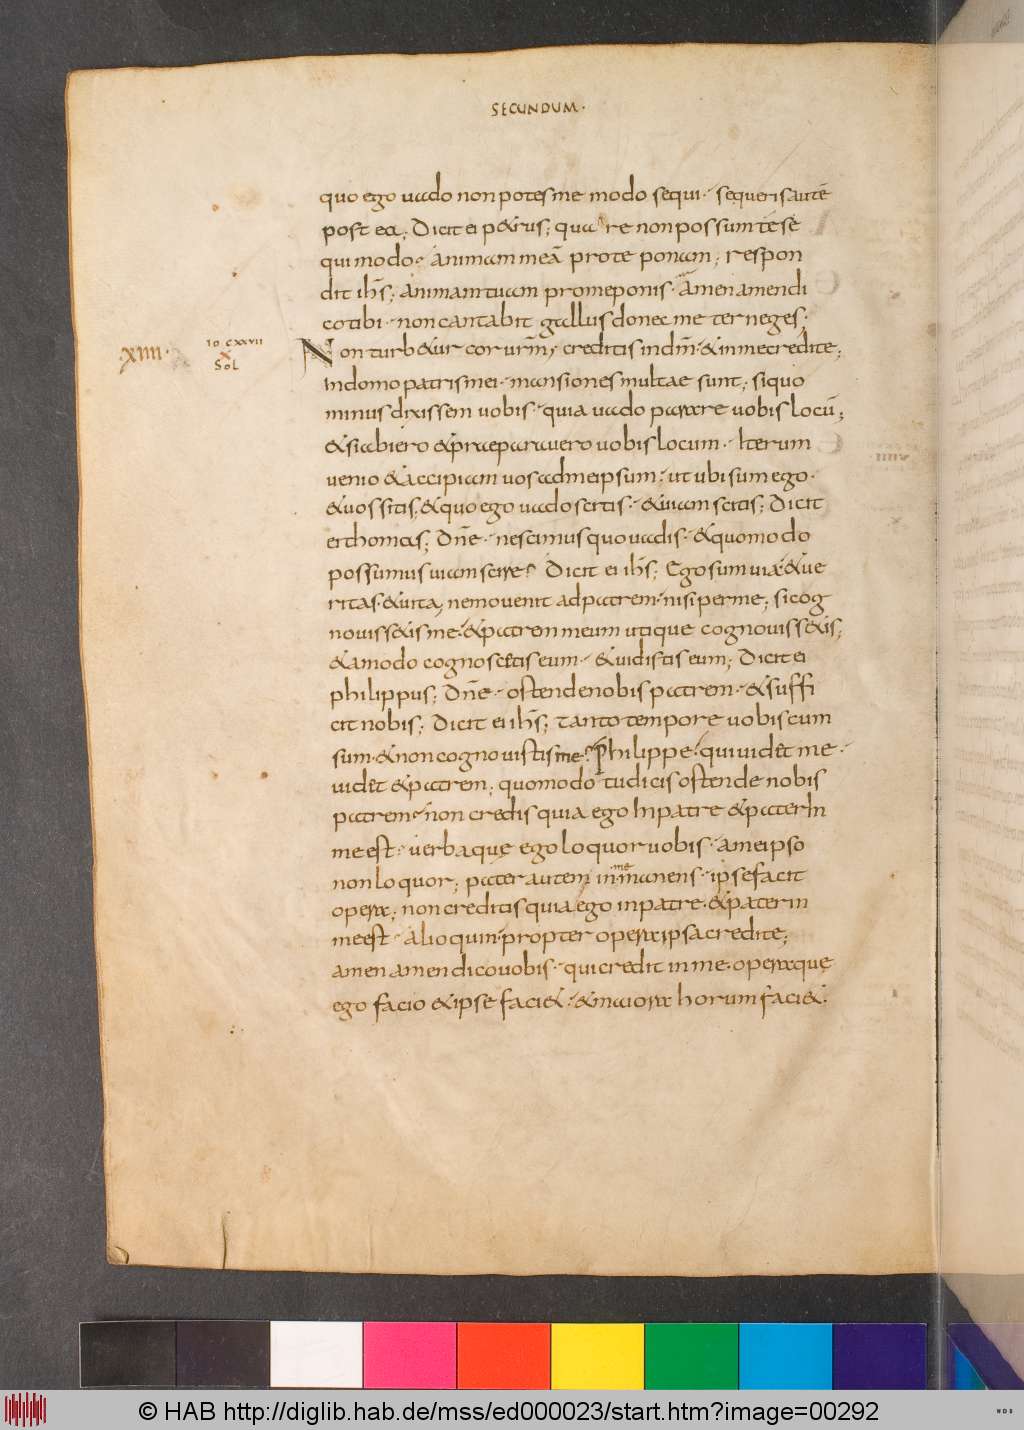 SECUNDUM·
quo ego uado non potes me modo sequi· sequeris autē
post ea; Dicit ei p&rus; qua re non possum te se
qui modo? animam meā pro te ponam; respon
dit ih̄s; animam tuam pro me ponis· amen amen di
co tibi· non cantabit gallus donec me ter neges;
·XIIII·
IO CXXVII
X
SOL
Non turb&ur cor ur̄m; creditis in dm̄· & in me credite;
In domo patris mei· mansiones multae sunt; si quo
minus dixissem uobis· quia uado parare uobis locū;
& si abiero & praeparauero uobis locum· Iterum
uenio & accipiam uos ad me ipsum· ut ubi sum ego·
& uos sitis; & quo ego uado scitis· & uiam scitis; Dicit
ei thomas; Dn̄e· nescimus quo uadis· & quomodo
possumus uiam scire? Dicit ei ih̄s; Ego sum uia & ue
ritas· & uita; nemo uenit ad patrem· nisi per me; si cog
nouiss&is me· & patrem meum utique cognouiss&is;
& amodo cognoscetis eum· & uidistis eum; Dicit ei
philippus; Dn̄e· ostende nobis patrem· & suffi
cit nobis; Dicit ei ih̄s; tanto tempore uobiscum
sum· & non cognouistis me? Philippe· qui uidet me·
uidet & patrem; quomodo tu dicis ostende nobis
patrem? non credis quia ego In patre & pater In
me est· uerba quę ego loquor uobis· a me ipso
non loquor; pater autem in me manens· ipse facit
opera; non creditis quia ego in patre· & pater in
me est· alioquin· propter opera ipsa credite;
amen amen dico uobis· qui credit in me· opera quę
ego facio & ipse faci&· & maiora horum faci&·
© HAB http://diglib.hab.de/mss/ed000023/start.htm?image=00292